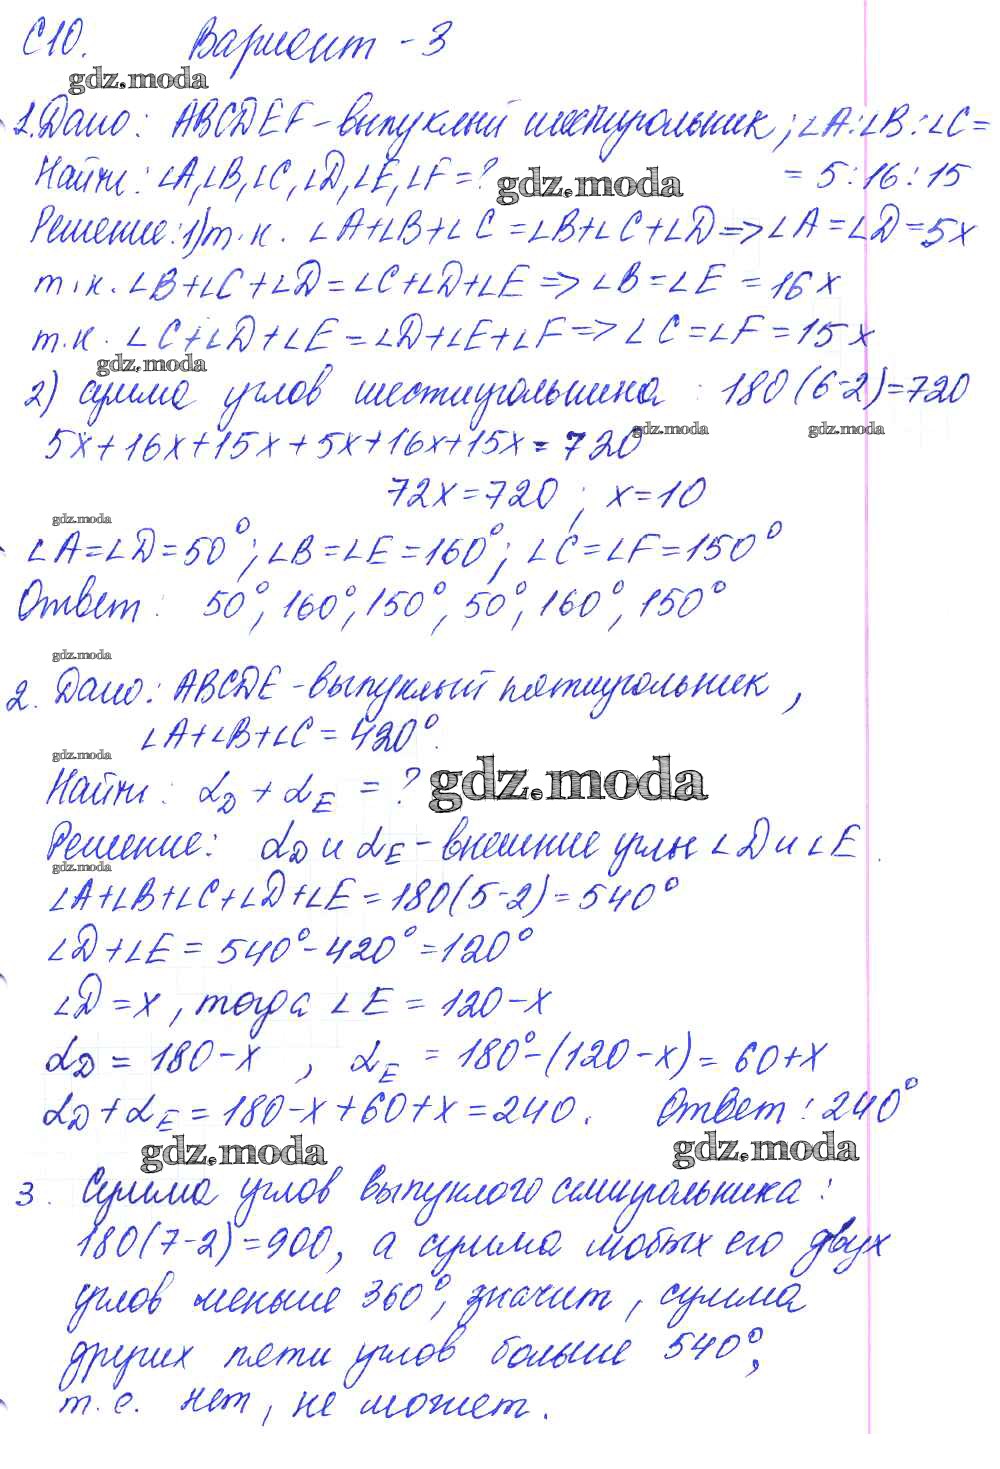 С10. Вариант - 3
gdz.moda
1. Дано: ABCDEF - выпуклый шестиугольник; ∠A:∠B:∠C =
Найти: ∠A, ∠B, ∠C, ∠D, ∠E, ∠F = ? gdz.moda = 5:16:15
Решение: 1) т.к. ∠A+∠B+∠C = ∠B+∠C+∠D => ∠A = ∠D = 5x
т.к. ∠B+∠C+∠D = ∠C+∠D+∠E => ∠B = ∠E = 16x
т.к. ∠C+∠D+∠E = ∠D+∠E+∠F => ∠C = ∠F = 15x
gdz.moda
2) сумма углов шестиугольника : 180(6-2)=720
5x+16x+15x+5x+16x+15x = 720
gdz.moda gdz.moda
72x = 720 ; x = 10
gdz.moda
∠A = ∠D = 50°; ∠B = ∠E = 160°; ∠C = ∠F = 150°
Ответ: 50°, 160°, 150°, 50°, 160°, 150°
gdz.moda
2. Дано: ABCDE - выпуклый пятиугольник,
∠A+∠B+∠C = 420°.
gdz.moda
Найти: α_D + α_E = ? gdz.moda
Решение: α_D и α_E - внешние углы ∠D и ∠E.
gdz.moda
∠A+∠B+∠C+∠D+∠E = 180(5-2) = 540°
∠D+∠E = 540° - 420° = 120°
∠D = x, тогда ∠E = 120 - x
α_D = 180 - x , α_E = 180° - (120 - x) = 60 + x
α_D + α_E = 180 - x + 60 + x = 240. Ответ: 240°
gdz.moda gdz.moda
3. Сумма углов выпуклого семиугольника:
180(7-2)=900, а сумма любых его двух
углов меньше 360°, значит, сумма
других пяти углов больше 540°,
т.е. нет, не может.